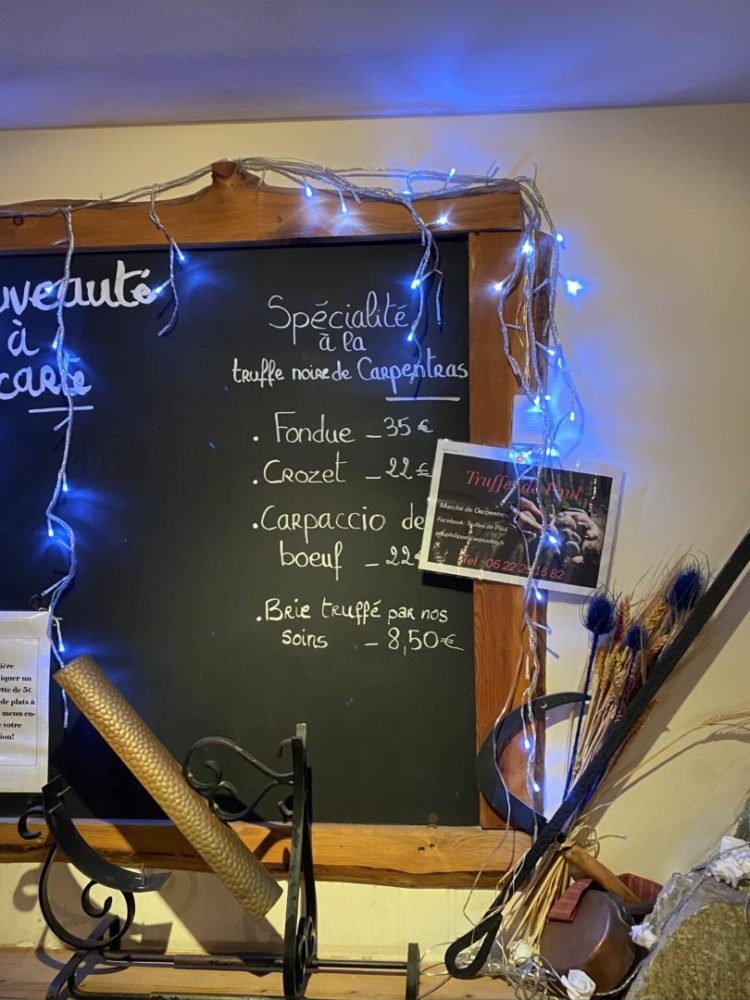 à
Spécialité
à la
truffe noire de Carpentras
. Fondue - 35 €
. Crozet - 22 €
. Carpaccio de
boeuf - 22
. Brie truffé par nos
soins - 8,50 €
Truffes de Paul
Marché de Carpentras
Facebook: Truffes de Paul
Tel : 06 22 25 16 82
ette de 5€
de plats à
menu en-
votre